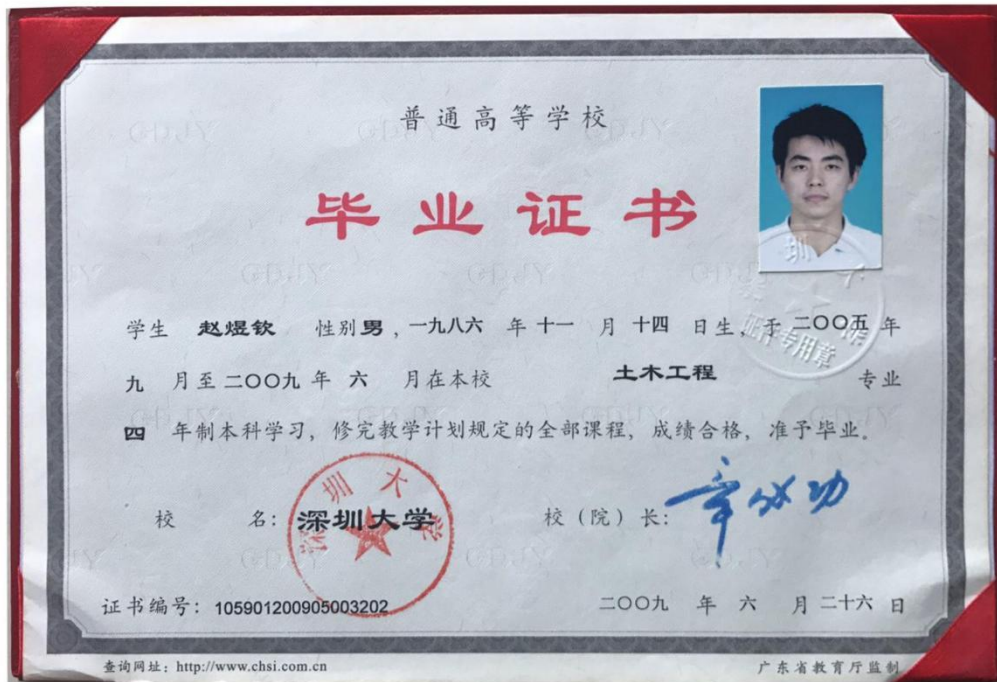 普通高等学校
毕业证书
学生 赵煜钦 性别男，一九八六 年十一 月十四 日生，于二〇〇五年
九 月至二〇〇九年 六 月在本校 土木工程 专业
四 年制本科学习，修完教学计划规定的全部课程，成绩合格，准予毕业。
校 名：深圳大学 校（院）长：章必功
深圳大学
证书编号：105901200905003202 二〇〇九 年 六 月二十六日
查询网址：http://www.chsi.com.cn 广东省教育厅监制